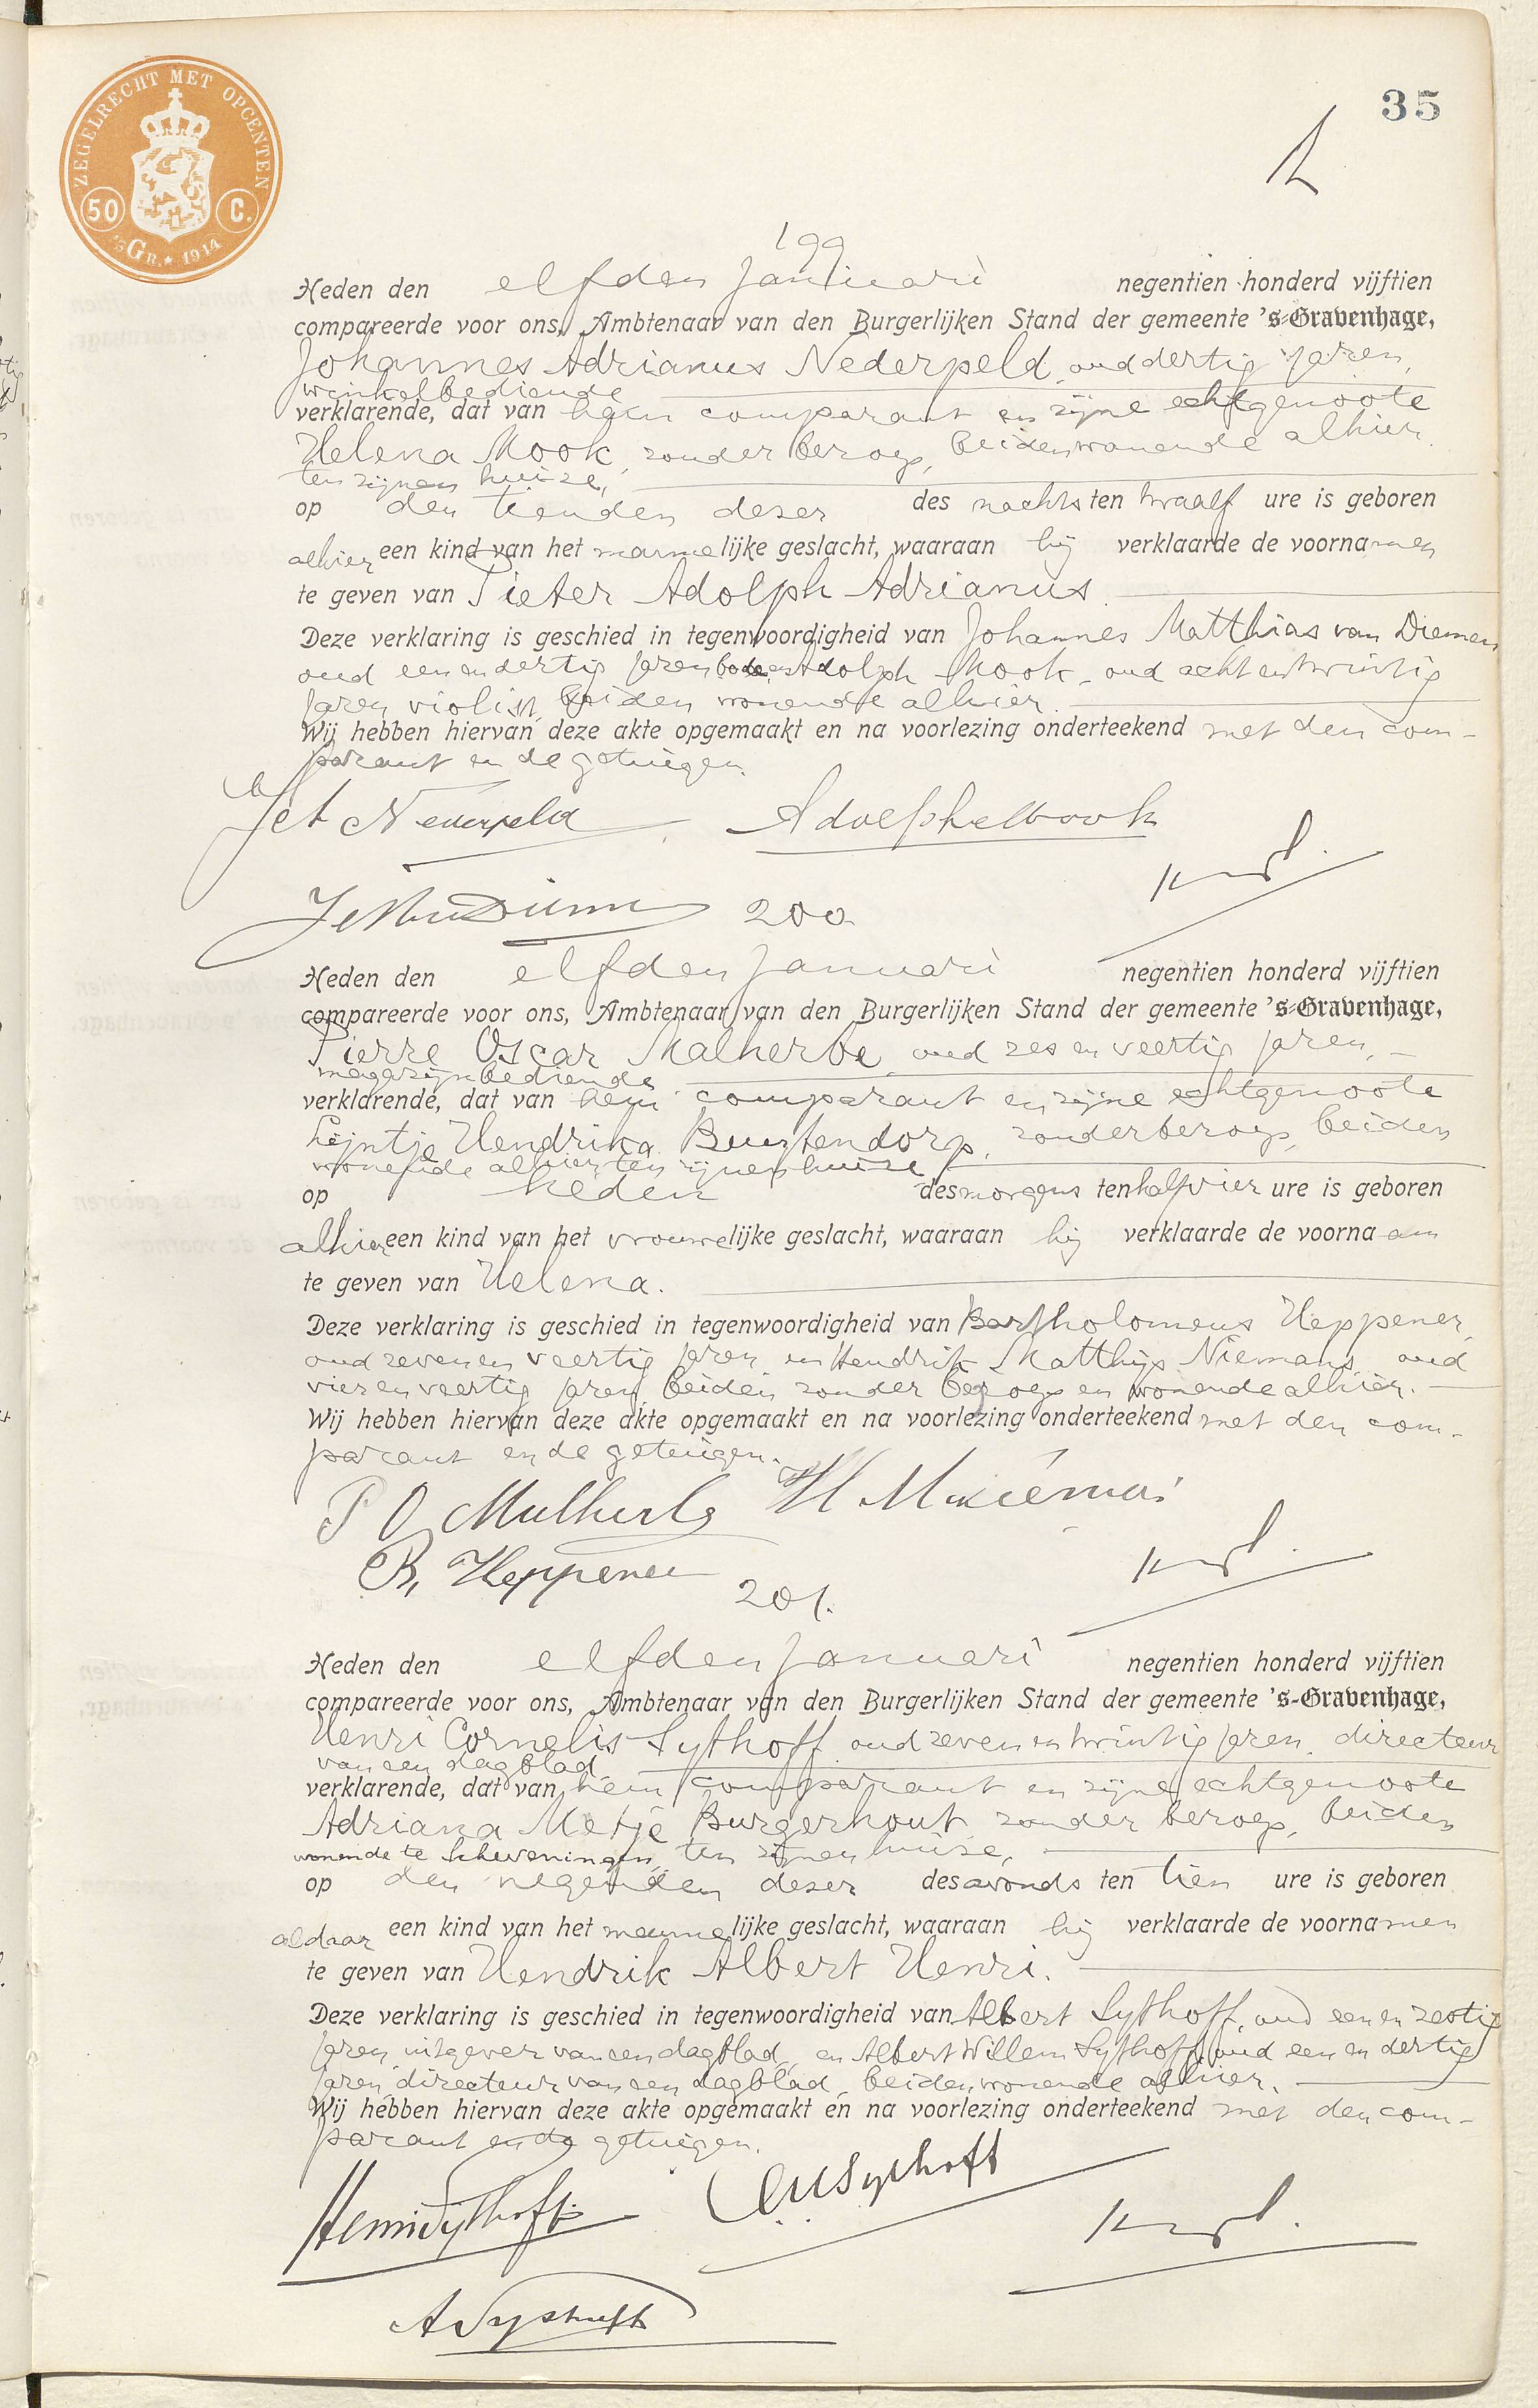 35
ZEGELRECHT MET OPCENTEN
50 C.
GR. * 1914
199
Heden den elfden Januari negentien honderd vijftien
compareerde voor ons, Ambtenaar van den Burgerlijken Stand der gemeente 's-Gravenhage,
Johannes Adrianus Nederpeld, oud dertig jaren,
winkelbediende
verklarende, dat van hem comparant en zijne echtgenoote
Helena Mook, zonder beroep, beiden wonende alhier
ten zijnen huize,
op den tienden dezer des nachts ten twaalf ure is geboren
alhier een kind van het mannelijke geslacht, waaraan hij verklaarde de voornamen
te geven van Pieter Adolph Adrianus.
Deze verklaring is geschied in tegenwoordigheid van Johannes Matthias van Diemen
oud een en dertig jaren bode en Adolph Mook, oud acht en twintig
jaren violist, beiden wonende alhier.
Wij hebben hiervan deze akte opgemaakt en na voorlezing onderteekend met den com-
parant en de getuigen.
Nederpeld Adolph Mook
200
Heden den elfden Januari negentien honderd vijftien
compareerde voor ons, Ambtenaar van den Burgerlijken Stand der gemeente 's-Gravenhage,
Pierre Oscar Malherbe, oud zes en veertig jaren,
magazijnbediende
verklarende, dat van hem comparant en zijne echtgenoote
Lijntje Hendrika Buytendorp, zonder beroep, beiden
wonende alhier, ten zijnen huize,
op heden des morgens ten half vier ure is geboren
alhier een kind van het vrouwelijke geslacht, waaraan hij verklaarde de voornaam
te geven van Helena.
Deze verklaring is geschied in tegenwoordigheid van Bartholomeus Heppener,
oud zeven en veertig jaren en Hendrik Matthijs Niemans, oud
vier en veertig jaren, beiden zonder beroep en wonende alhier.
Wij hebben hiervan deze akte opgemaakt en na voorlezing onderteekend met den com-
parant en de getuigen.
P O Malherbe
B. Heppener
201.
Heden den elfden Januari negentien honderd vijftien
compareerde voor ons, Ambtenaar van den Burgerlijken Stand der gemeente 's-Gravenhage,
Henri Cornelis Sythoff, oud zeven en twintig jaren, directeur
van een dagblad
verklarende, dat van hem comparant en zijne echtgenoote
Adriana Metje Burgerhout, zonder beroep, beiden
wonende te Scheveningen, ten zijnen huize,
op den negenden dezer des avonds ten tien ure is geboren
aldaar een kind van het mannelijke geslacht, waaraan hij verklaarde de voornamen
te geven van Hendrik Albert Henri.
Deze verklaring is geschied in tegenwoordigheid van Albert Sythoff, oud een en zestig
jaren, uitgever van een dagblad, en Albert Willem Sythoff, oud een en dertig
jaren, directeur van een dagblad, beiden wonende alhier.
Wij hebben hiervan deze akte opgemaakt en na voorlezing onderteekend met den com-
parant en de getuigen.
Henri Sythoff Sythoff
A Sythoff